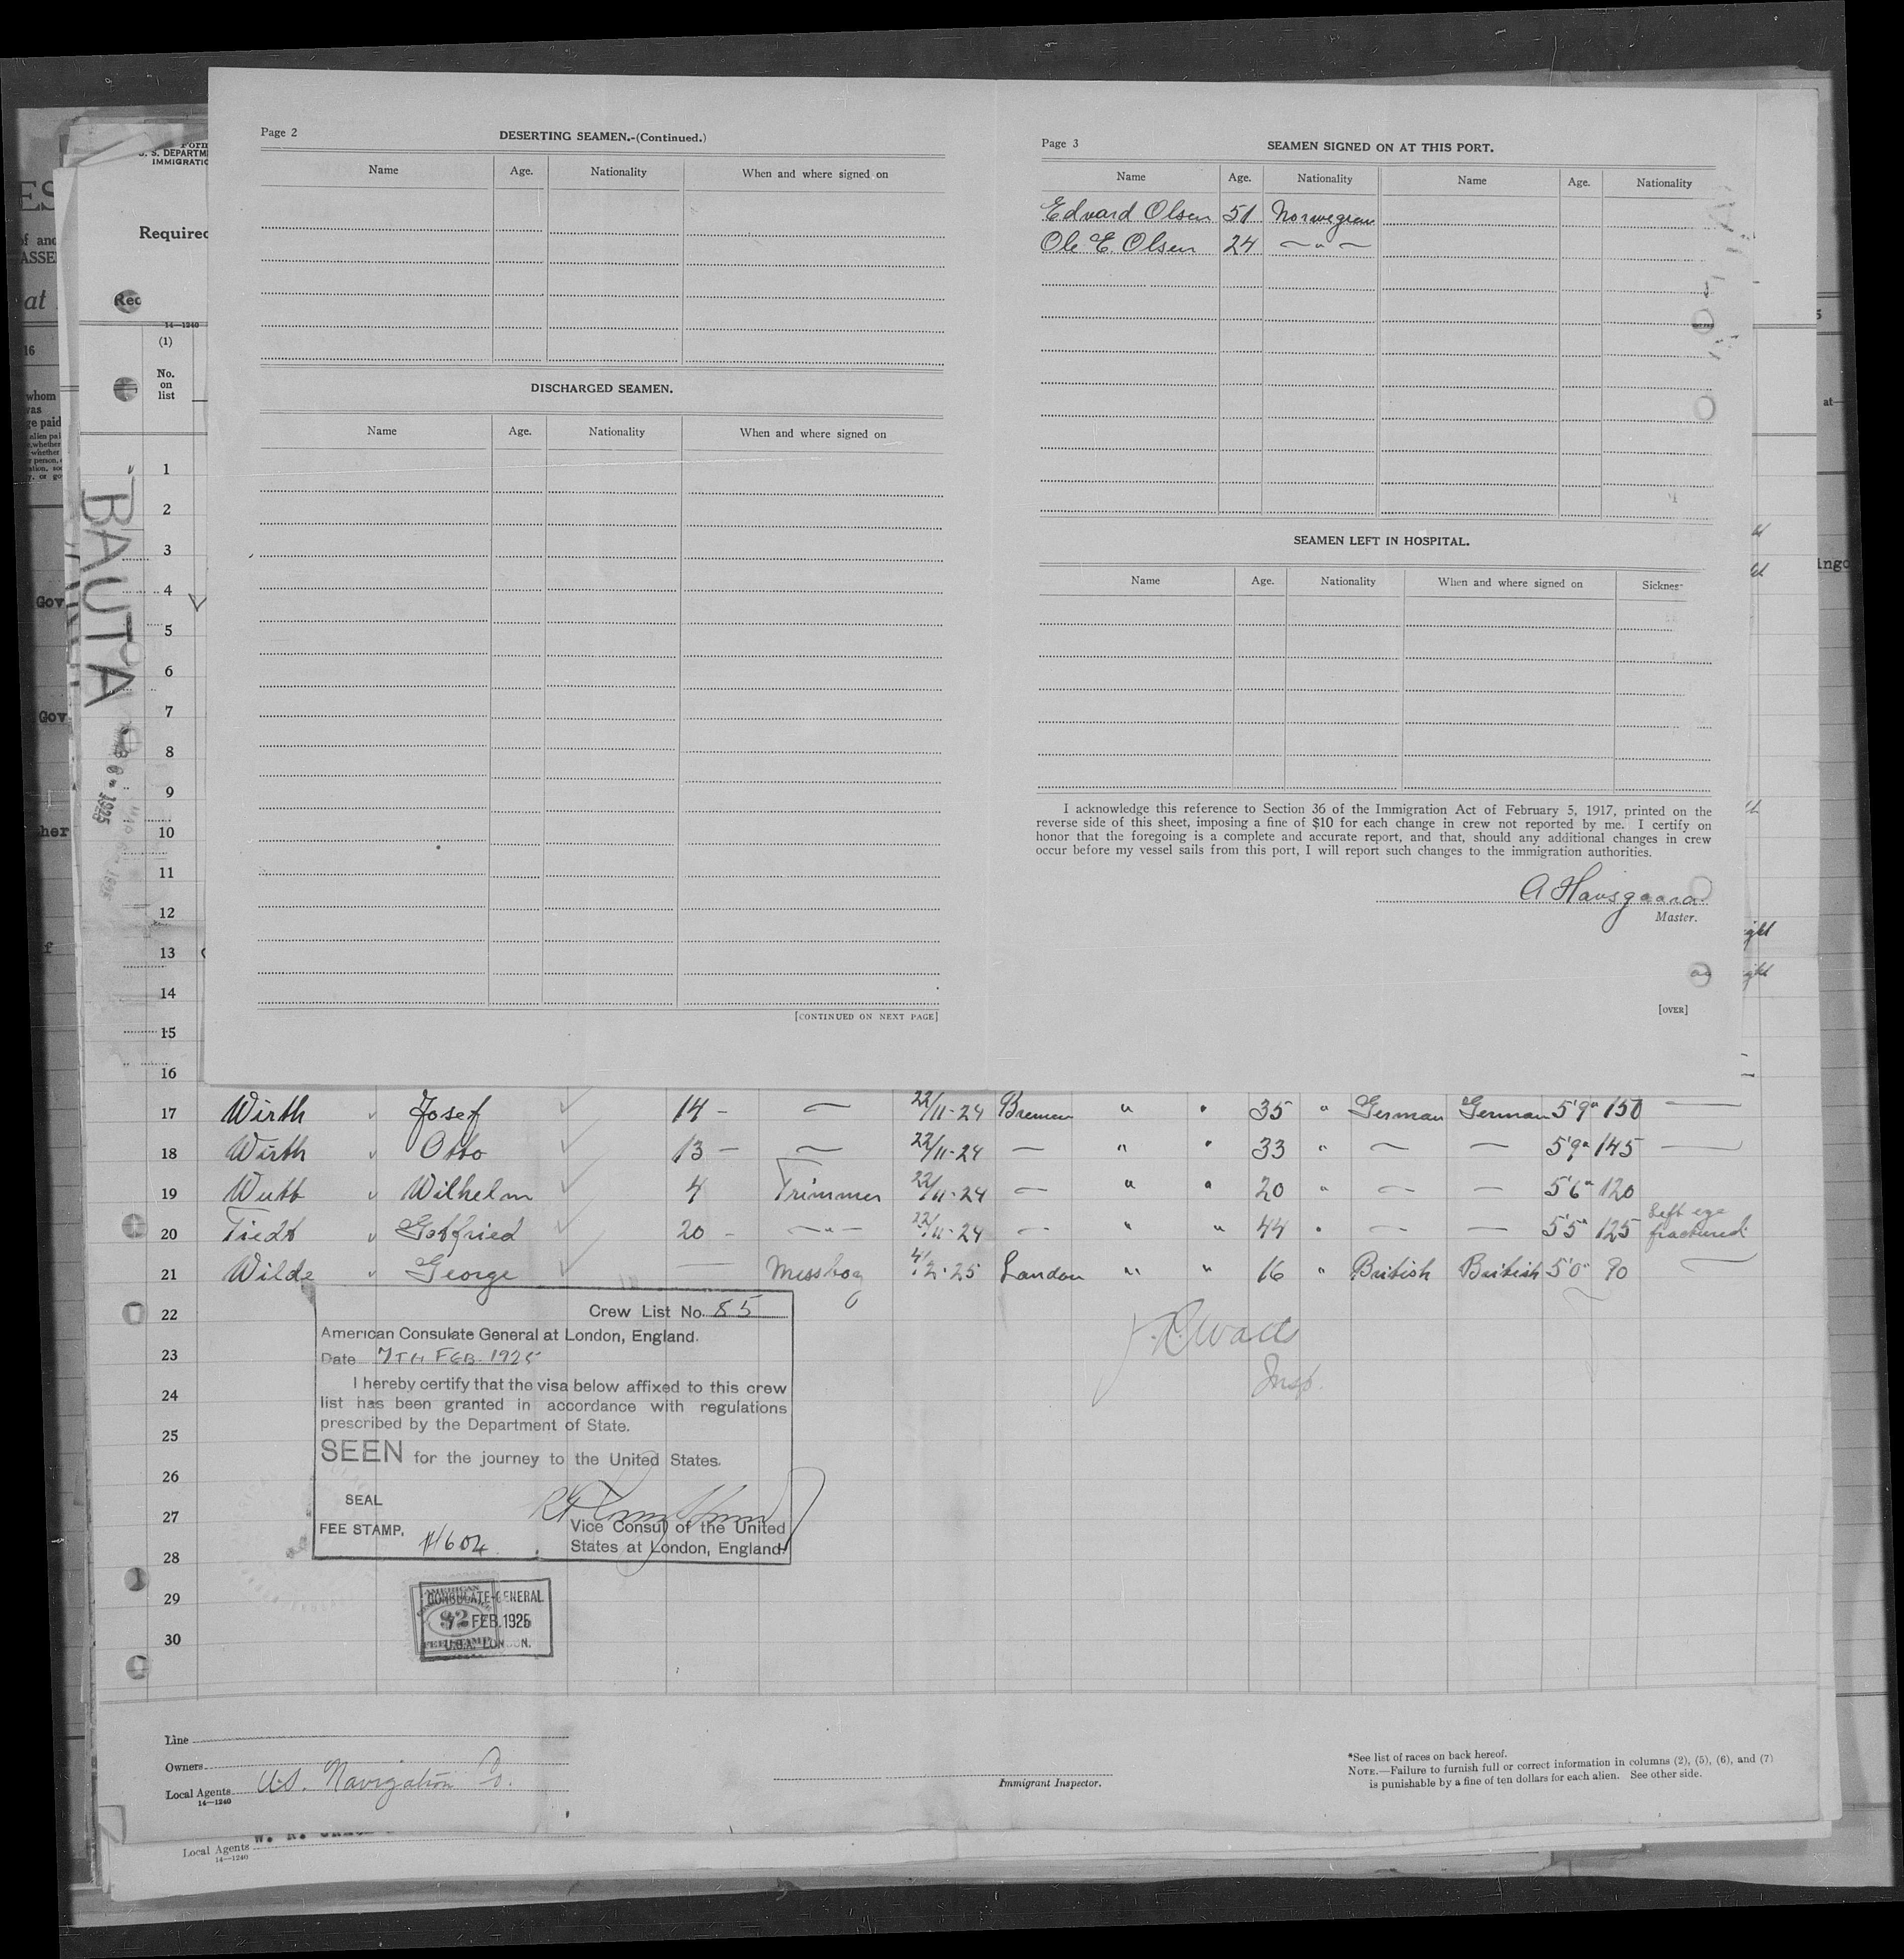 Page 2
DESERTING SEAMEN.-(Continued.)
Name Age. Nationality When and where signed on
DISCHARGED SEAMEN.
Name Age. Nationality When and where signed on
[CONTINUED ON NEXT PAGE]
Page 3
SEAMEN SIGNED ON AT THIS PORT.
Name Age. Nationality Name Age. Nationality
Edvard Olsen 51 Norwegian
Ole E. Olsen 24 — " —
SEAMEN LEFT IN HOSPITAL.
Name Age. Nationality When and where signed on
I acknowledge this reference to Section 36 of the Immigration Act of February 5, 1917, printed on the
reverse side of this sheet, imposing a fine of $10 for each change in crew not reported by me. I certify on
honor that the foregoing is a complete and accurate report, and that, should any additional changes in crew
occur before my vessel sails from this port, I will report such changes to the immigration authorities.
Master.
[OVER]
Required
14—1240
(1)
No.
on
list
BAUTA
1
2
3
4
5
6
7
8
9
10
11
12
13
14
15
16
17 Wirth " Josef 14 - — 22/11-24 Bremen " " 35 " German German 5'9" 150 —
18 Wirth " Otto 13 — — 22/11-24 — " " 33 " — — 5'9" 145 —
19 " Wilhelm 4 Trimmer 22/11-24 — " " 20 " — — 5'6" 120
20 Tiedt " Gottfried 20 - — " — 22/11-24 — " " 44 " — — 5'5" 125 Left eye
fractured
21 Wilde " George — Messboy 4/2-25 London " " 16 " British British 5'0" 90 —
22
23
24
25
26
27
28
29
30
Crew List No. 85
American Consulate General at London, England.
Date 7TH FEB. 1925
I hereby certify that the visa below affixed to this crew
list has been granted in accordance with regulations
prescribed by the Department of State.
SEEN for the journey to the United States.
SEAL
FEE STAMP.
Vice Consul of the United
States at London, England.
Insp.
CONSULATE-GENERAL
FEB. 1925
Line
Owners
Local Agents U.S. Navigation Co.
14—1240
Immigrant Inspector.
*See list of races on back hereof.
NOTE.—Failure to furnish full or correct information in columns (2), (5), (6), and (7)
is punishable by a fine of ten dollars for each alien. See other side.
Local Agents
14—1240